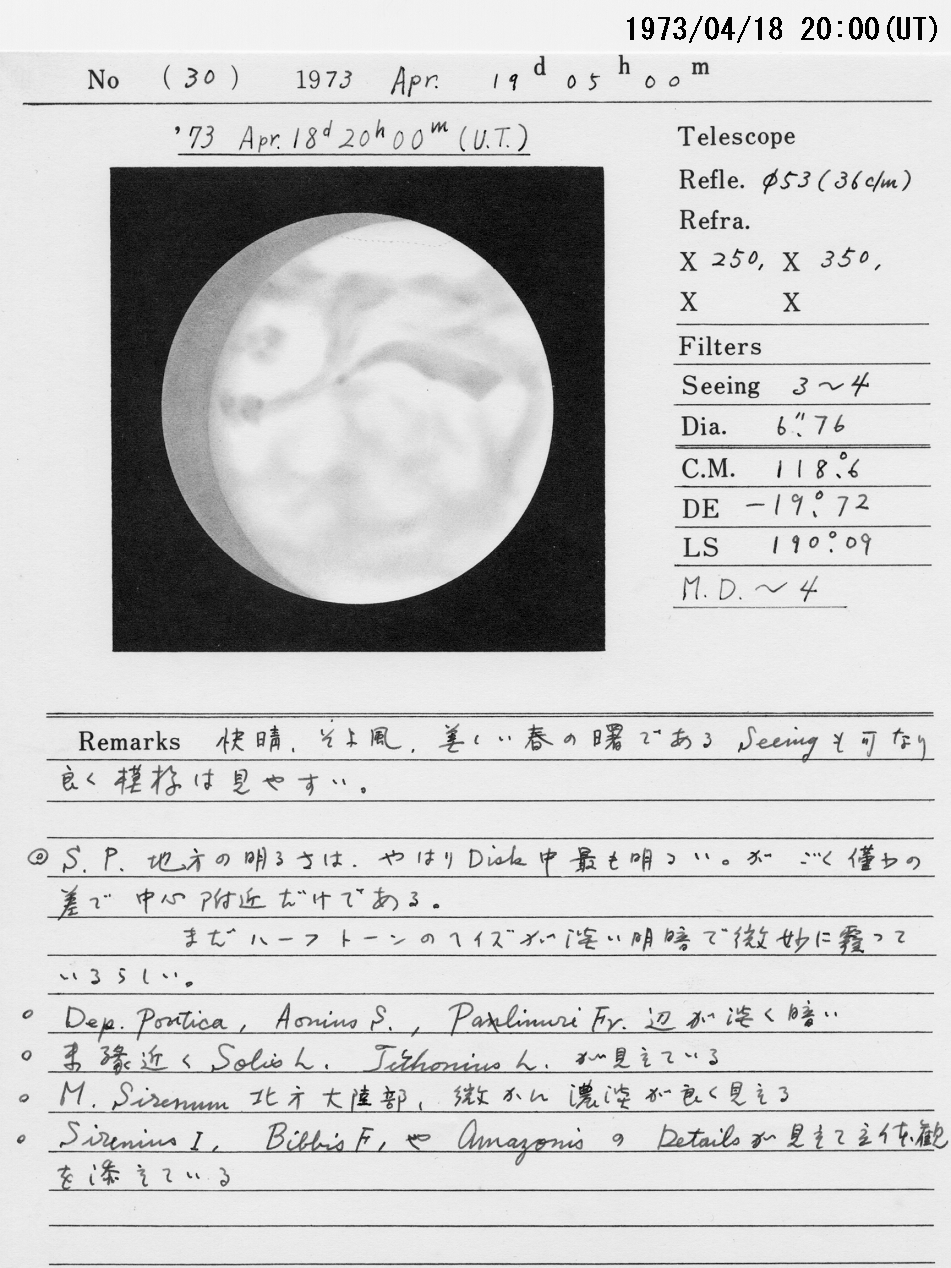 1973/04/18 20:00(UT)
No (30) 1973 Apr. 19d 05h 00m
'73 Apr. 18d 20h 00m (U.T.)
Telescope
Refle. φ53 (36c/m)
Refra.
X 250, X 350,
X X
Filters
Seeing 3~4
Dia. 6".76
C.M. 118°.6
DE -19°.72
LS 190°.09
M.D. ~4
Remarks 快晴, そよ風, 美しい春の曙である Seeingも可なり
良く模様は見やすい。
◎ S.P. 地方の明るさは、やはりDisk中最も明るい。が ごく僅かの
差で中心附近だけである。
まだハーフトーンのヘイズが淡い明暗で微妙に覆って
いるらしい。
○ Dep. Pontica, Aonius S., Fr. 辺が淡く暗い
○ 縁近く Solis L. Tithonius L. が見えている
○ M. Sirenum 北方大陸部, 微かに濃淡が良く見える
○ Sirenius I, Bibbis F, や Amazonis の Detailsが見えて立体観
を添えている